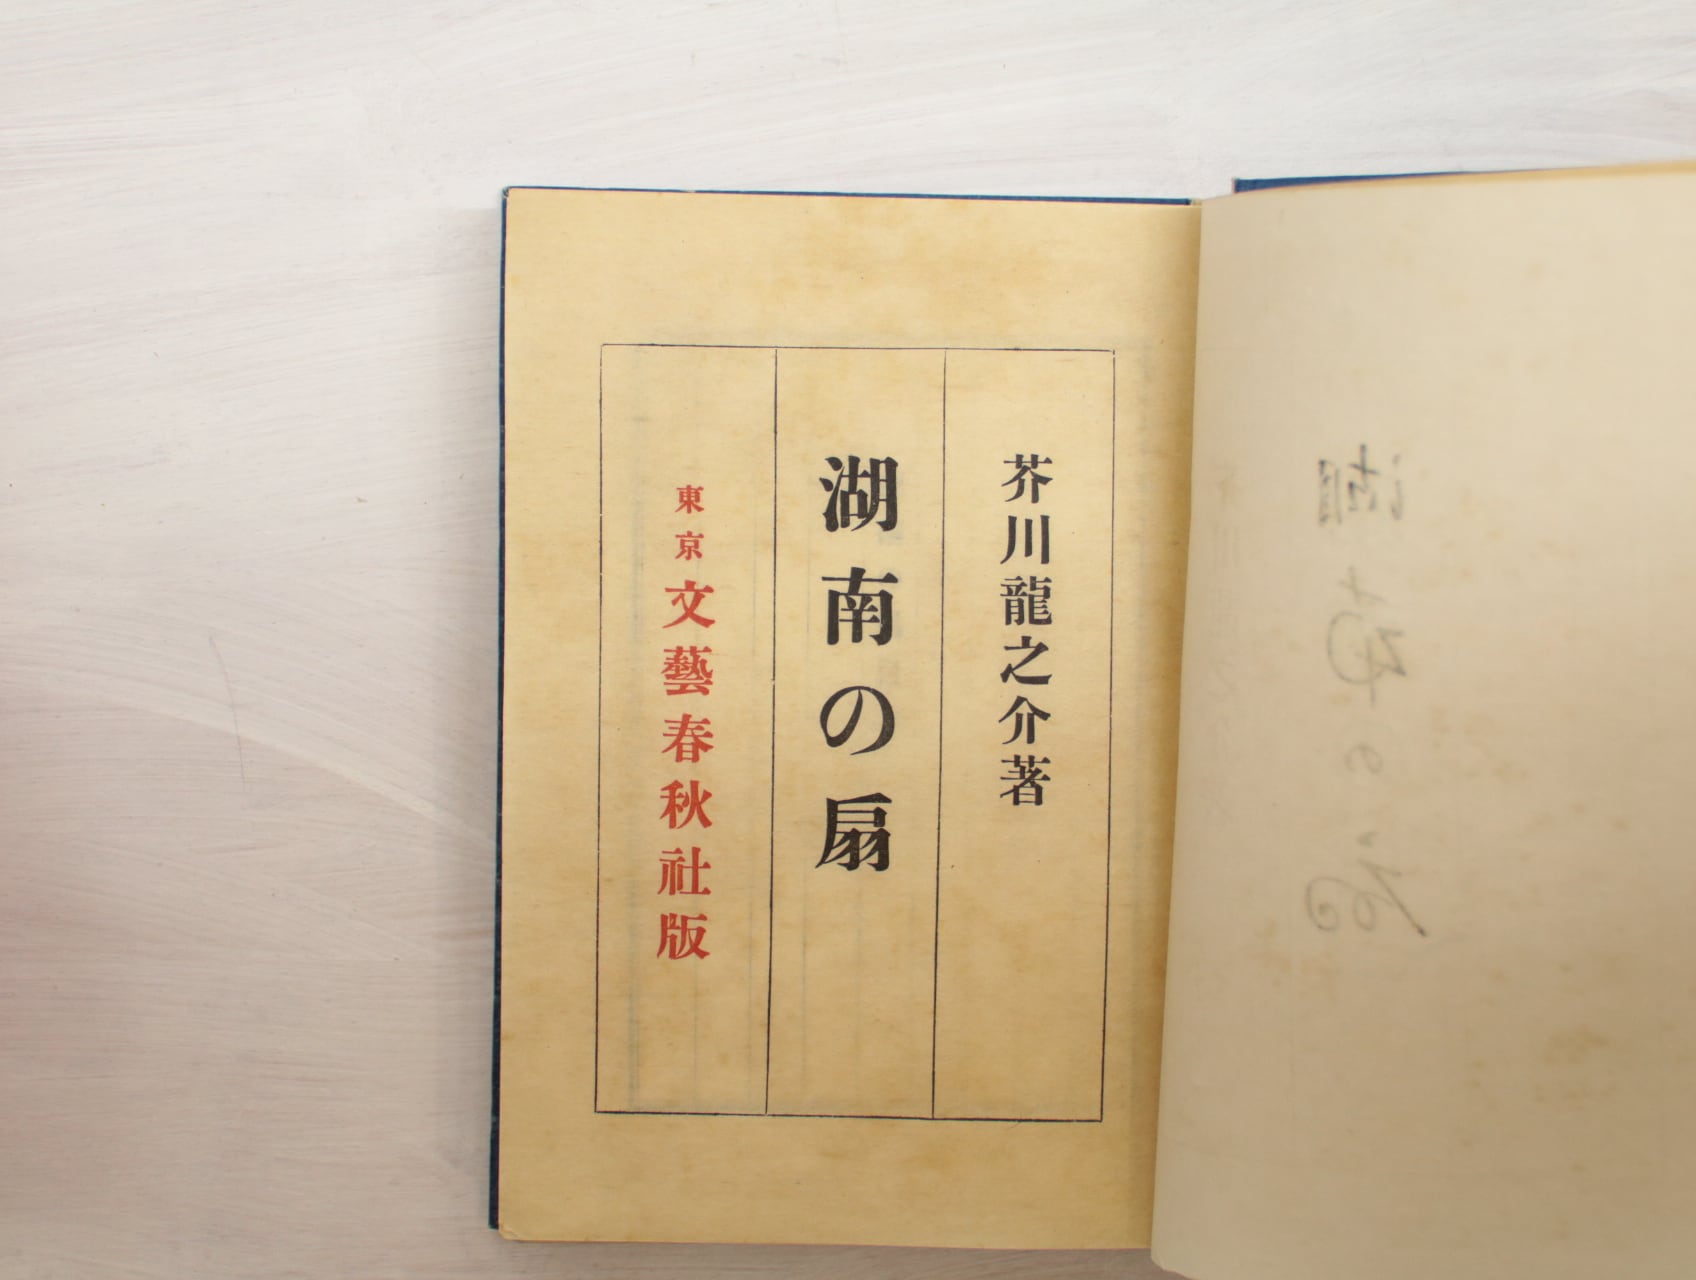 芥川龍之介著
湖南の扇
東京 文藝春秋社版
湖南の扇